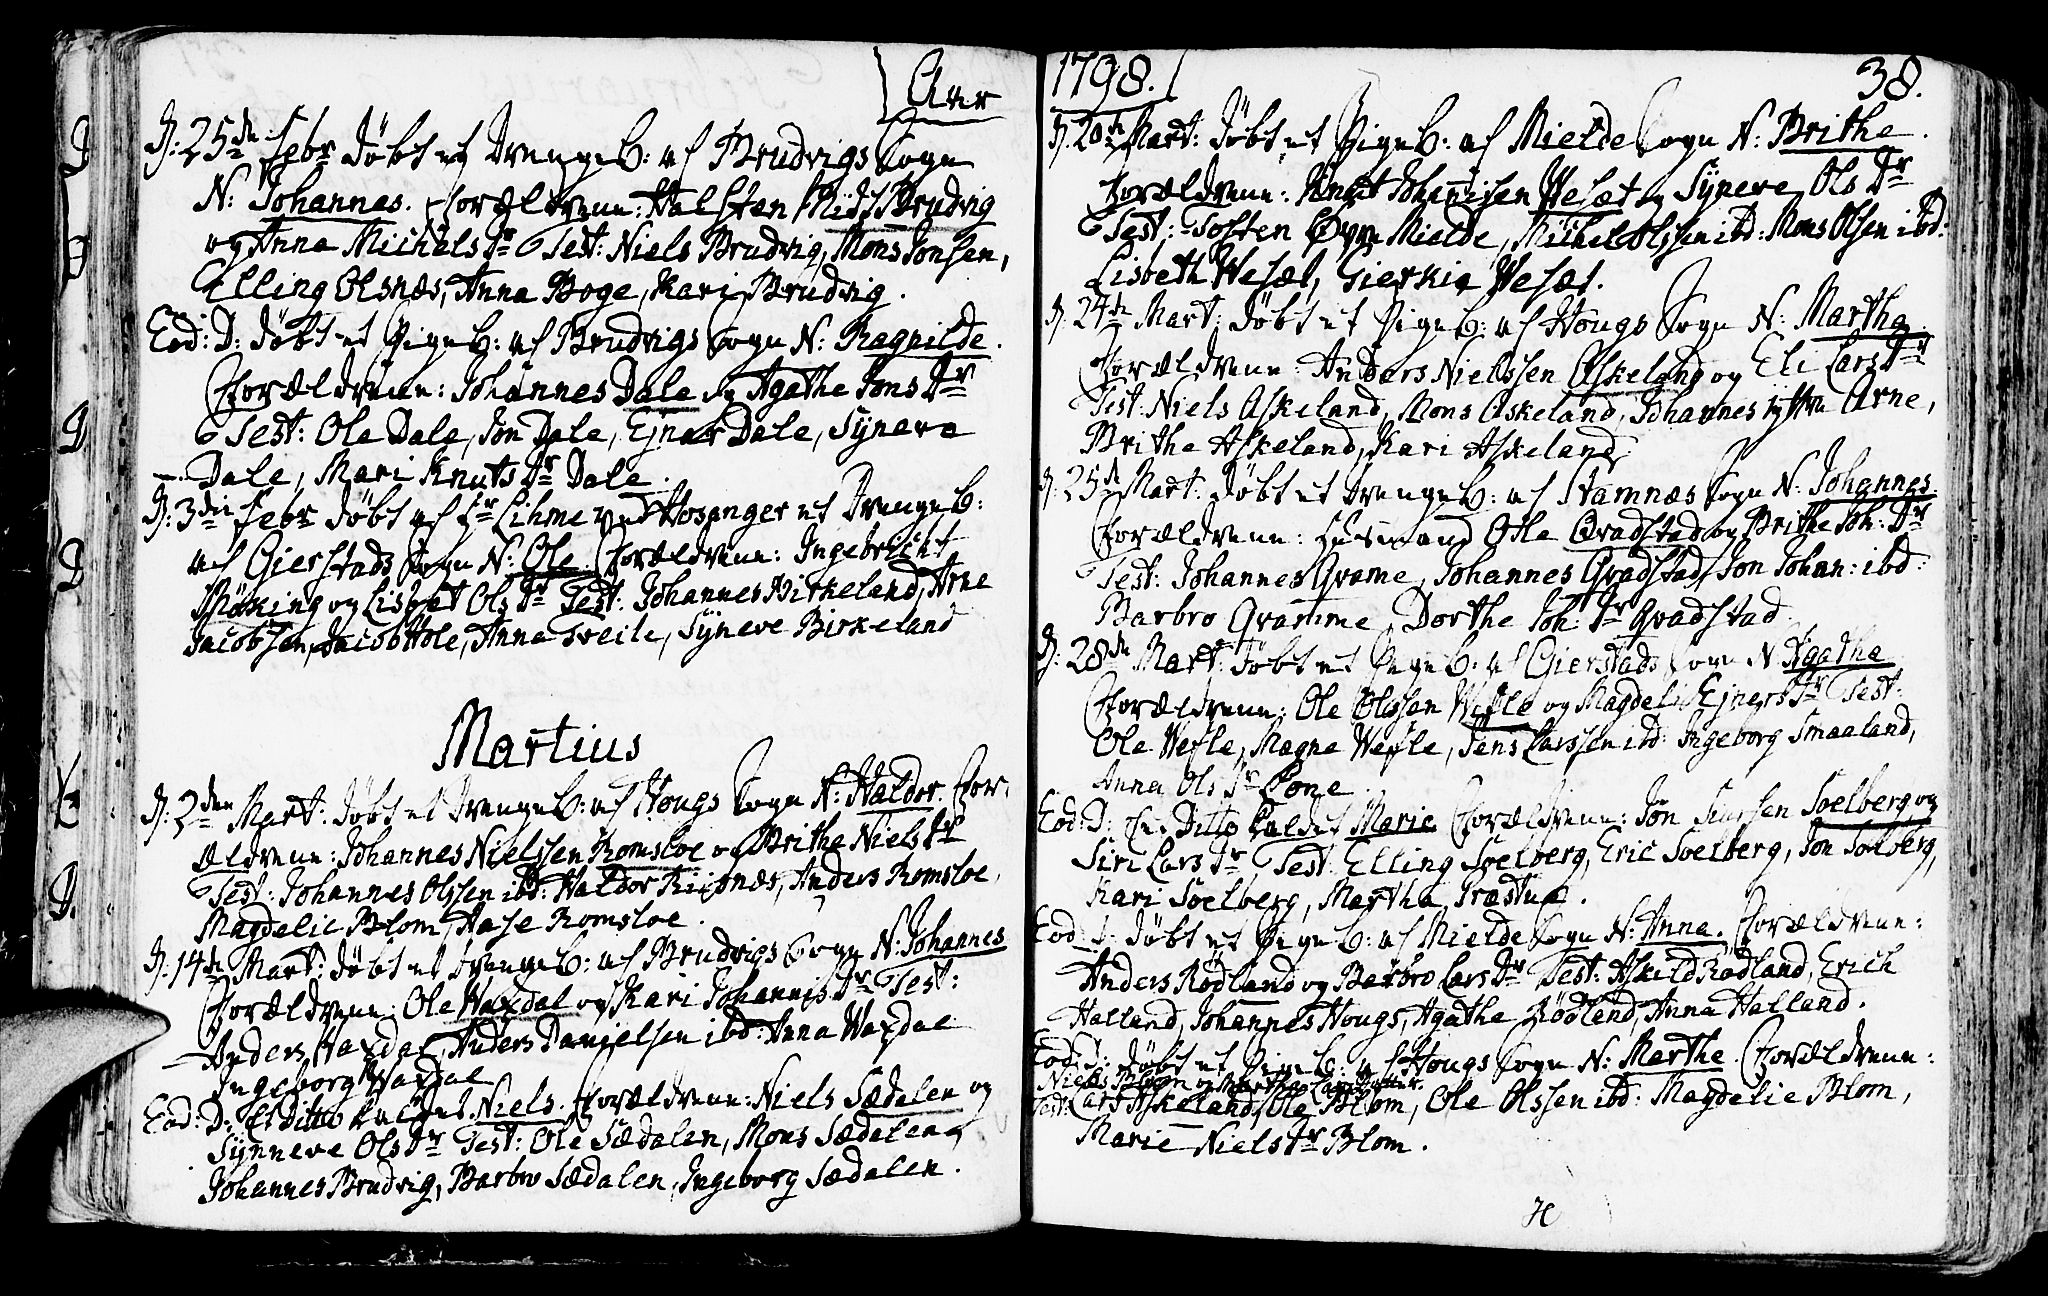 Ann
D: 25de Febr döbt et Drengeb: af Brudvigs Sogn
N: Johannes. Forældrene: Halsten Brudvig
og Anna Michels Dr Test: Niels Brudvig, Mons Jonsen,
Elling Olsnæs, Anna Boge, Kari Brudvig.
Eod: D: döbt et Pigeb: af Brudvigs Sogn N: Ragnilde.
Forældrene: Johannes Dale og Agathe Jons Dr
Test: Ole Dale, Jon Dale, Ejner Dale, Syneve
Dale, Mari Knuts Dr Dale.
D: 3die Febr döbt af Hr Lihme ved Hosanger et Drengeb:
af Gierstads Sogn N: Ole. Forældrene: Ingebricht
Møking og Lisbet Ols Dr Test: Johannes Birkeland, Arne
Jacobsen, Jacob Hole, Anna Tveile, Syneve Birkeland
Martius
D: 2den Mart: döbt et Drengeb: af Hougs Sogn N: Haldor. For-
ældrene: Johannes Nielssen Romsloe og Brithe Niels Dr
Test: Johannes Olssen ibd: Haldor Riisnæs, Anders Romsloe,
Magdelie Blom, Aase Romsloe.
D: 14de Mart: döbt et Drengeb: af Brudvigs Sogn N: Johannes
Forældrene: Ole Waxdal og Kari Johannis Dr Test:
Anders Waxdal, Anders Danielsen ibd: Anna Waxdal
Ingeborg Waxdal
Eod: D: Et Ditto kaldet Niels. Forældrene: Niels Sædalen og
Synneve Ols Dr Test: Ole Sædalen, Mons Sædalen,
Johannes Brudvig, Barbro Sædalen, Ingeborg Sædalen.
1798.
38.
D: 20de Mart: döbt et Pigeb: af Mielde Sogn N: Brithe.
Forældrene: Knut Johanisen Wesæt og Syneve Ols Dr
Test: Tosten Øvre Mielde, Michel Olssen ibd: Mons Olsen ibd:
Lisbeth Wesæt, Gierkie Wesæt.
D: 24de Mart: döbt et Pigeb: af Hougs Sogn N: Martha
Forældrene: Anders Nielssen Askeland og Eli Lars Dr
Test: Niels Askeland, Mons Askeland, Johannes Arne,
Brithe Askeland, Kari Askeland
D: 25de Mart: döbt et Drengeb: af Stamnæs Sogn N: Johannes.
Forældrene: Husmand Ole Qvadstad og Brithe Joh: Dr
Test: Johannes Qvame, Johannes Qvadstad, Jon Johan: ibd:
Barbro Qvamme, Dorthe Joh: Dr Qvadstad
D: 28de Mart: döbt et Pigeb: af Gierstads Sogn N: Agatha
Forældrene: Ole Olssen Wefle og Magdeli Ejners Dr Test:
Ole Wefle, Magne Wefle, Jens Larssen ibd: Ingeborg Smaaland,
Anna Ols Dr Lone.
Eod: D: Et Ditto kaldet Marie Forældrene: Jon Siursen Soelberg og
Siri Lars Dr Test: Elling Soelberg, Eric Soelberg, Jon Soelberg,
Kari Soelberg, Martha Træstue.
Eod: D: döbt et Pigeb: af Mielde Sogn N: Anna. Forældrene:
Anders Rødland og Barbro Lars Dr Test: Askild Rødland, Erich
Halland, Johannes Hougs, Agatha Rødland, Anna Halland.
Eod: D: döbt et Pigeb: af Hougs Sogn N: Marthe. Forældrene:
Niels Blom og Martha Lars Datter.
Test: Lars Askeland, Ole Blom, Ole Olssen ibd: Magdelie Blom,
Marie Niels Dr Blom.